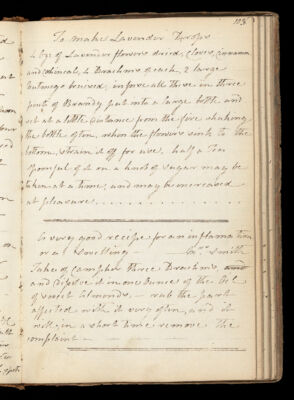 108
To make Lavender Drops
4 Ozs of Lavender flowers dried, Cloves, Cinnamon
and Cochineal, 2 Drachms of each, 2 large
Nutmegs bruised, infuse all these in three
pint of Brandy put into a large bottle and
set at a little distance from the fire shaking
the bottle often, when the flowers sink to the
bottom, strain it off for use. half a Tea
spoonful of it on a knob of sugar may be
taken at a time, and may be increased
at pleasure
A very good recipe for an inflamation
or a Swelling Mrs Smith
Take of camphor three Drachms,
and disolve it in one Ounce of the Oil
of sweet Almonds - rub the part
affected with it very often, and it
will, in a short time remove the
complaint